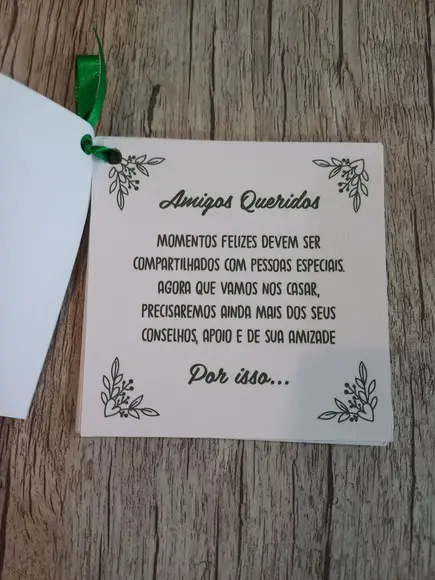 Amigos Queridos
MOMENTOS FELIZES DEVEM SER
COMPARTILHADOS COM PESSOAS ESPECIAIS.
AGORA QUE VAMOS NOS CASAR,
PRECISAREMOS AINDA MAIS DOS SEUS
CONSELHOS, APOIO E DE SUA AMIZADE
Por isso...